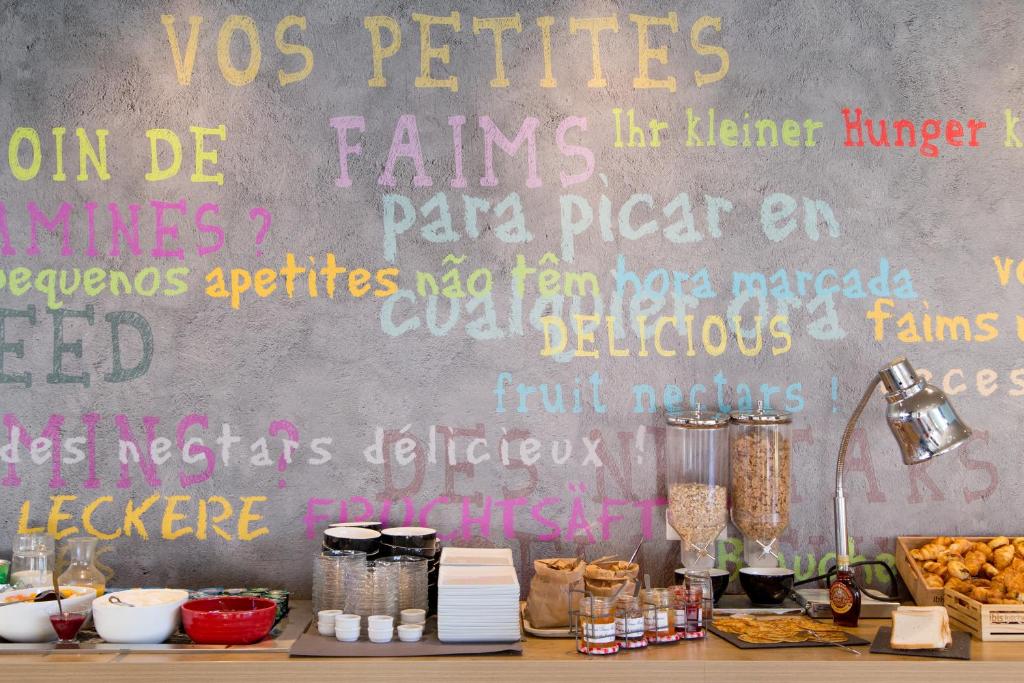 VOS PETITES
OIN DE
FAIMS
Ihr kleiner Hunger k
AMINES ?
para picar en
pequenos apetites não têm hora marcada
cualquier ora
EED
DELICIOUS
faims
fruit nectars !
MINS ?
des nectars délicieux !
DES NECTARS
LECKERE
FRUCHTSÄFT
ibis